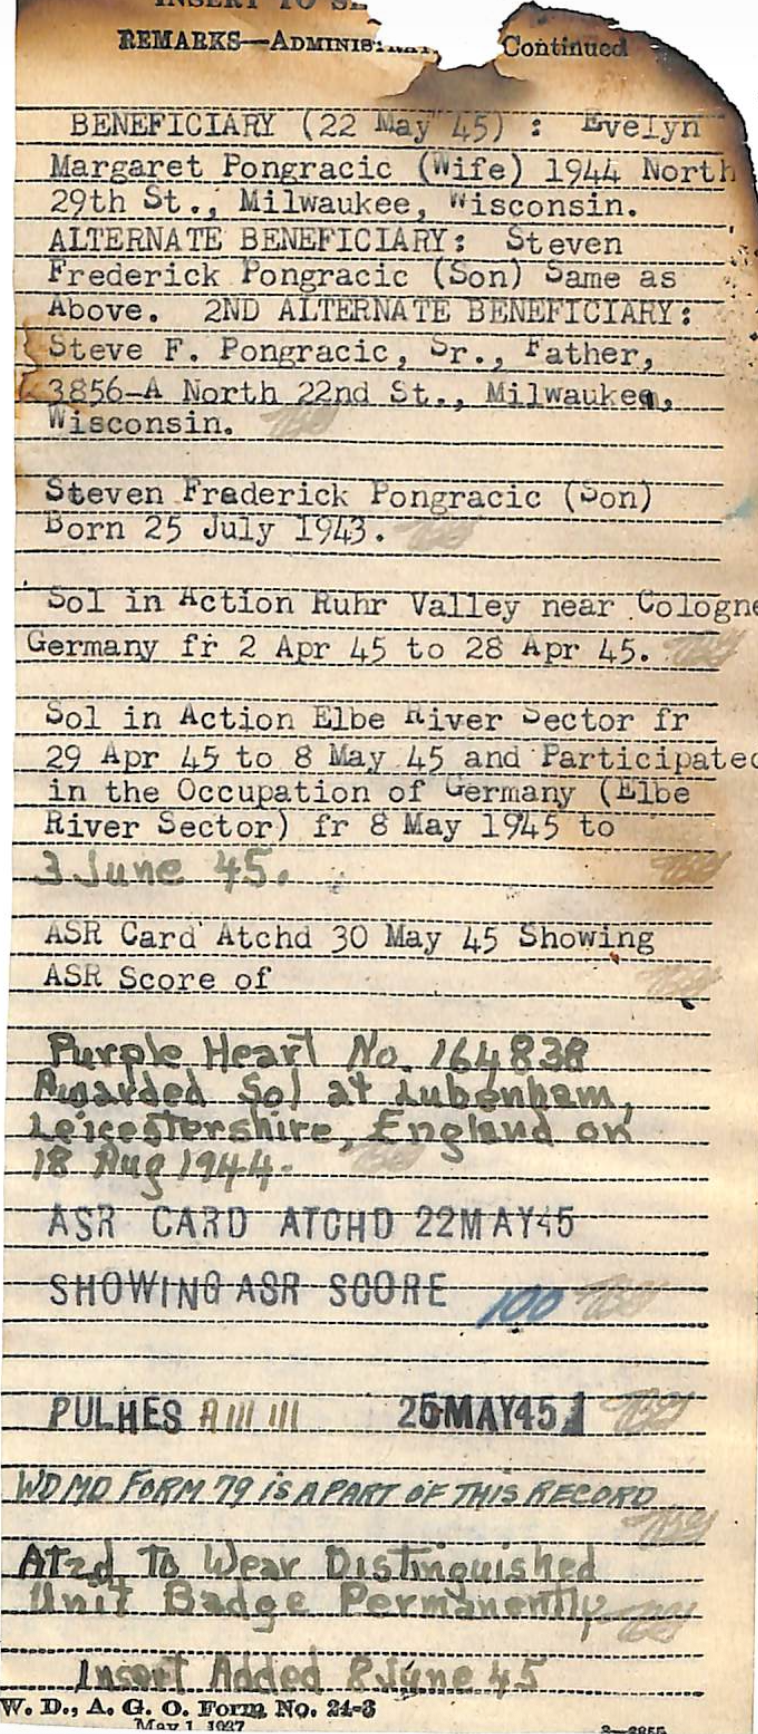 INSERT TO
REMARKS—ADMINIS Continued
BENEFICIARY (22 May 45) : Evelyn
Margaret Pongracic (Wife) 1944 North
29th St., Milwaukee, Wisconsin.
ALTERNATE BENEFICIARY: Steven
Frederick Pongracic (Son) Same as
Above. 2ND ALTERNATE BENEFICIARY:
Steve F. Pongracic, Sr., Father,
3856-A North 22nd St., Milwaukee,
Wisconsin.
Steven Frederick Pongracic (Son)
Born 25 July 1943.
Sol in Action Ruhr Valley near Cologne
Germany fr 2 Apr 45 to 28 Apr 45.
Sol in Action Elbe River Sector fr
29 Apr 45 to 8 May 45 and Participated
in the Occupation of Germany (Elbe
River Sector) fr 8 May 1945 to
3 June 45.
ASR Card Atchd 30 May 45 Showing
ASR Score of
Purple Heart No. 164838
Awarded Sol at Lubenham,
Leicestershire, England on
18 Aug 1944.
ASR CARD ATCHD 22MAY45
SHOWING ASR SCORE 100
PULHES A III III 25MAY45
WD MD FORM 79 IS A PART OF THIS RECORD
Atzd To Wear Distinguished
Unit Badge Permanently
Insert Added 8 June 45
W. D., A. G. O. Form No. 24-3
May 1, 1937